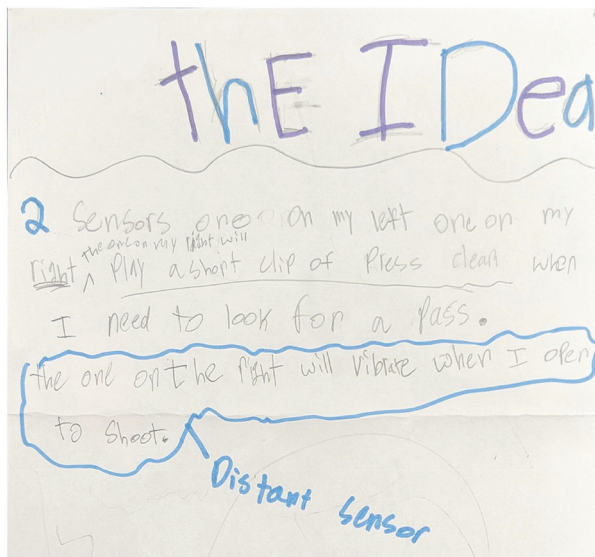 thE IDea
2 Sensors one on my left one on my
the one on my right will
right ^ Play a short clip of Press clear when
I need to look for a Pass.
the one on the right will vibrate when I open
to shoot.
Distant sensor